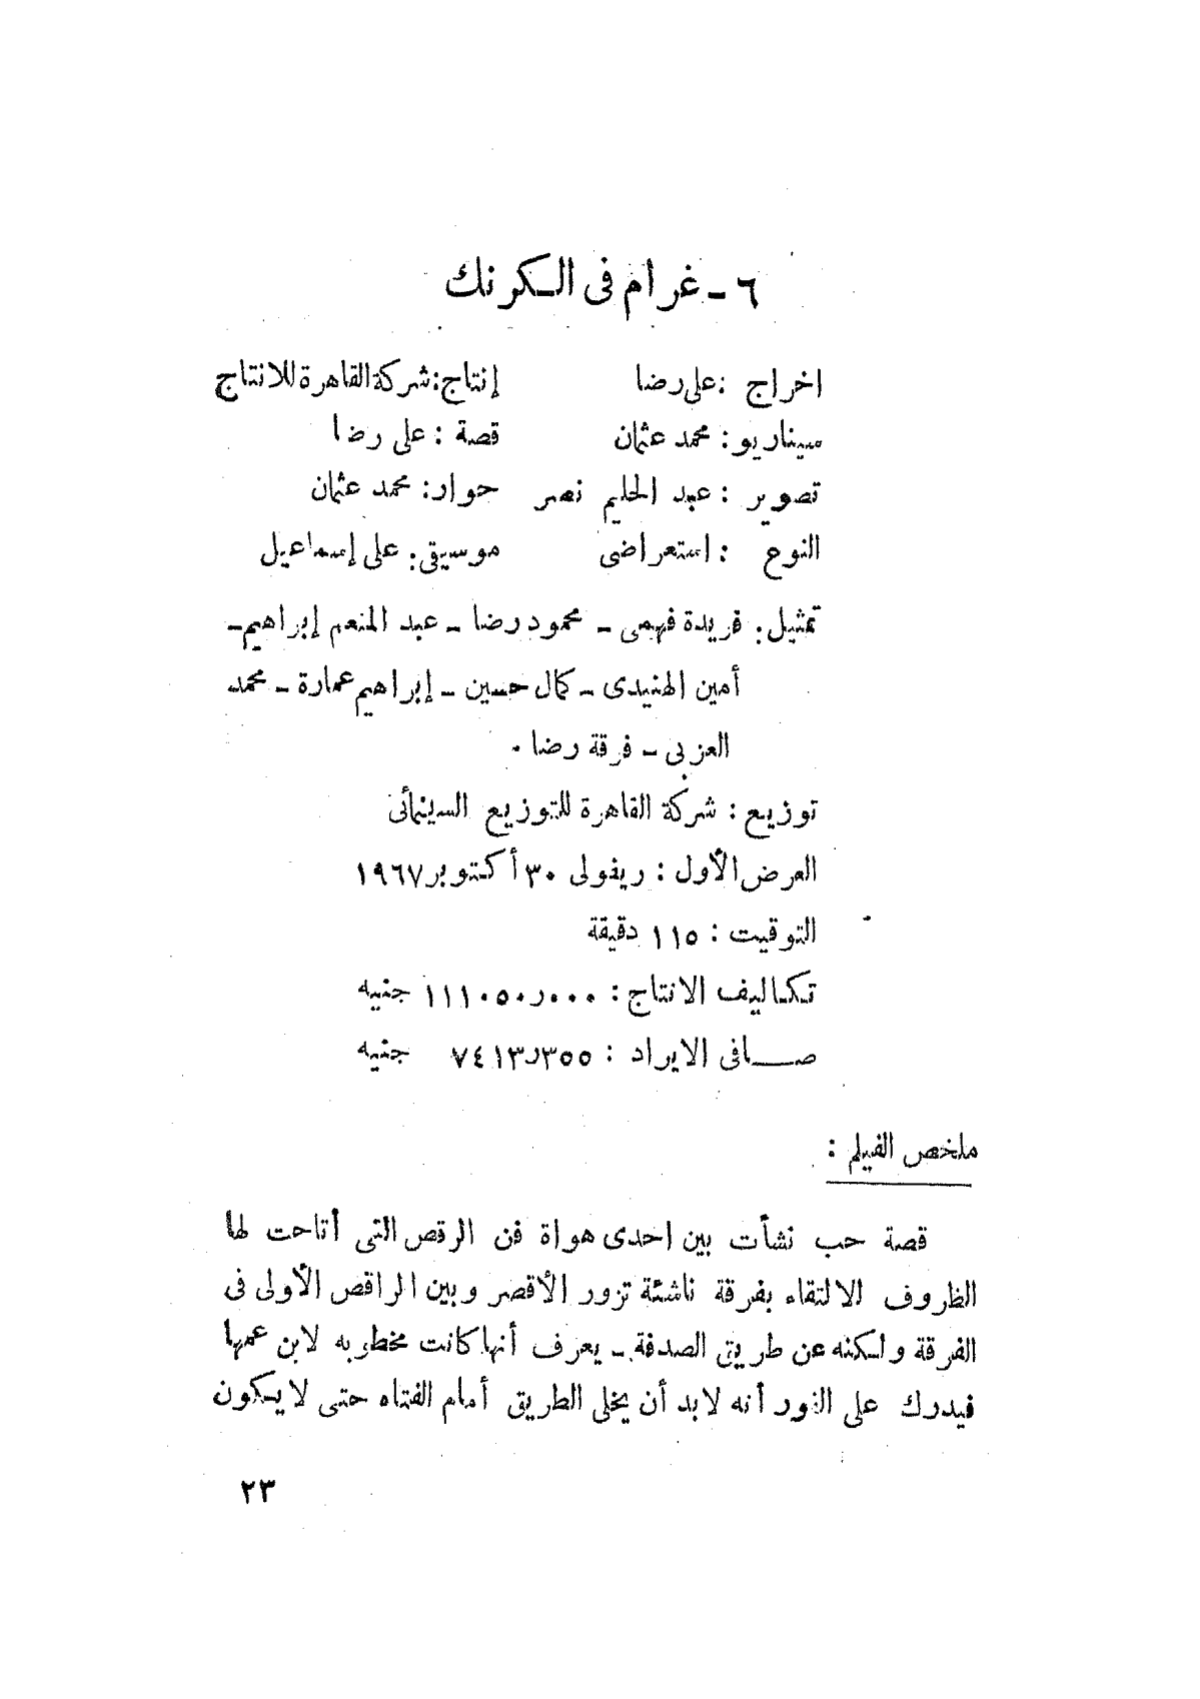 ٦ - غرام فى الكرنك
اخراج : على رضا إنتاج : شركة القاهرة للانتاج
سيناريو : محمد عثمان قصة : على رضا
تصوير : عبد الحليم نصر حوار : محمد عثمان
النوع : استعراضى موسيقى : على إسماعيل
تمثيل : فريدة فهمى - محمود رضا - عبد المنعم إبراهيم -
أمين الهنيدى - كمال حسين - إبراهيم عمارة - محمد
العزبى - فرقة رضا .
توزيع : شركة القاهرة للتوزيع السينمائى
العرض الأول : ريفولى ٣٠ أكتوبر ١٩٦٧
التوقيت : ١١٥ دقيقة
تكاليف الانتاج : ١١١٠٥٠ر٠٠٠ جنيه
صافى الايراد : ٧٤١٣ر٣٥٥ جنيه
ملخص الفيلم :
قصة حب نشأت بين احدى هواة فن الرقص التى أتاحت لها
الظروف الالتقاء بفرقة ناشئة تزور الأقصر وبين الراقص الأولى فى
الفرقة ولكنه عن طريق الصدفة - يعرف أنها كانت مخطوبه لابن عمها
فيدرك على النور أنه لابد أن يخلى الطريق أمام الفتاه حتى لا يكون
٢٣